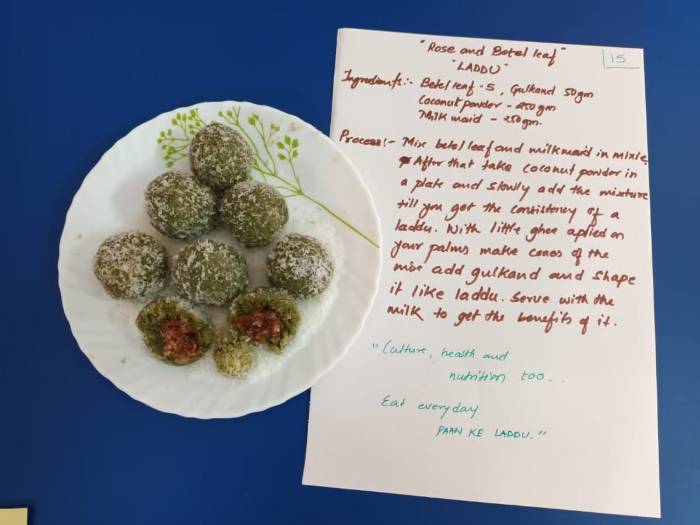 "Rose and Betel leaf"
15
"LADDU"
Ingredients:- Betel leaf - 5, Gulkand 50gm
Coconut powder - 250gm
Milk maid - 250gm.
Process:- Mix betel leaf and milkmaid in mixie
After that take coconut powder in
a plate and slowly add the mixture
till you got the consistency of a
laddu. With little ghee aplied on
your palms make cones of the
mix add gulkand and shape
it like laddu. Serve with the
milk to get the benefits of it.
"Culture, health and
nutrition too..
Eat everyday
PAAN KE LADDU."